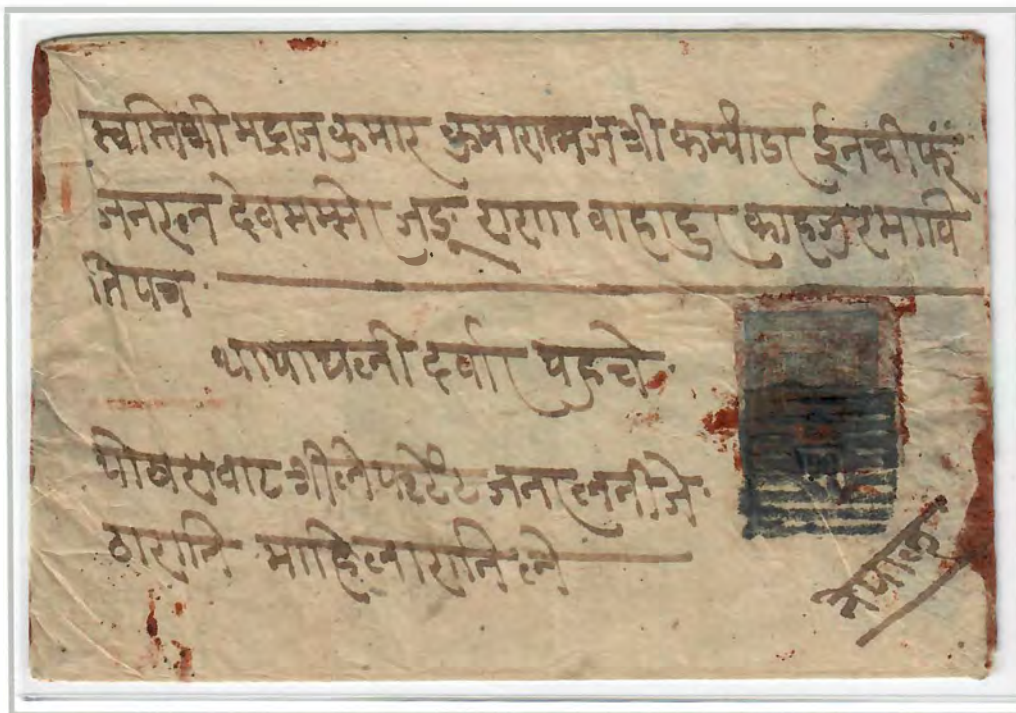 स्वस्तिश्री मद्राजकुमार कुमारात्मज श्री कम्यांडा ईनचीफ
जनरल देवसम्सेर जङ्ग राणा वाहादुर काहजुरमा वि
तिपत्र
थापाथली दर्वार पहुचे
पोखरावाट श्री लेफ्टेंट जनरालनी जे
ठारानि माहिलारानिले
नेपाल